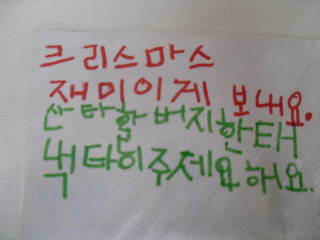 크리스마스
재미이게 보내요.
산타할버지한테
넥타이주제요해요.